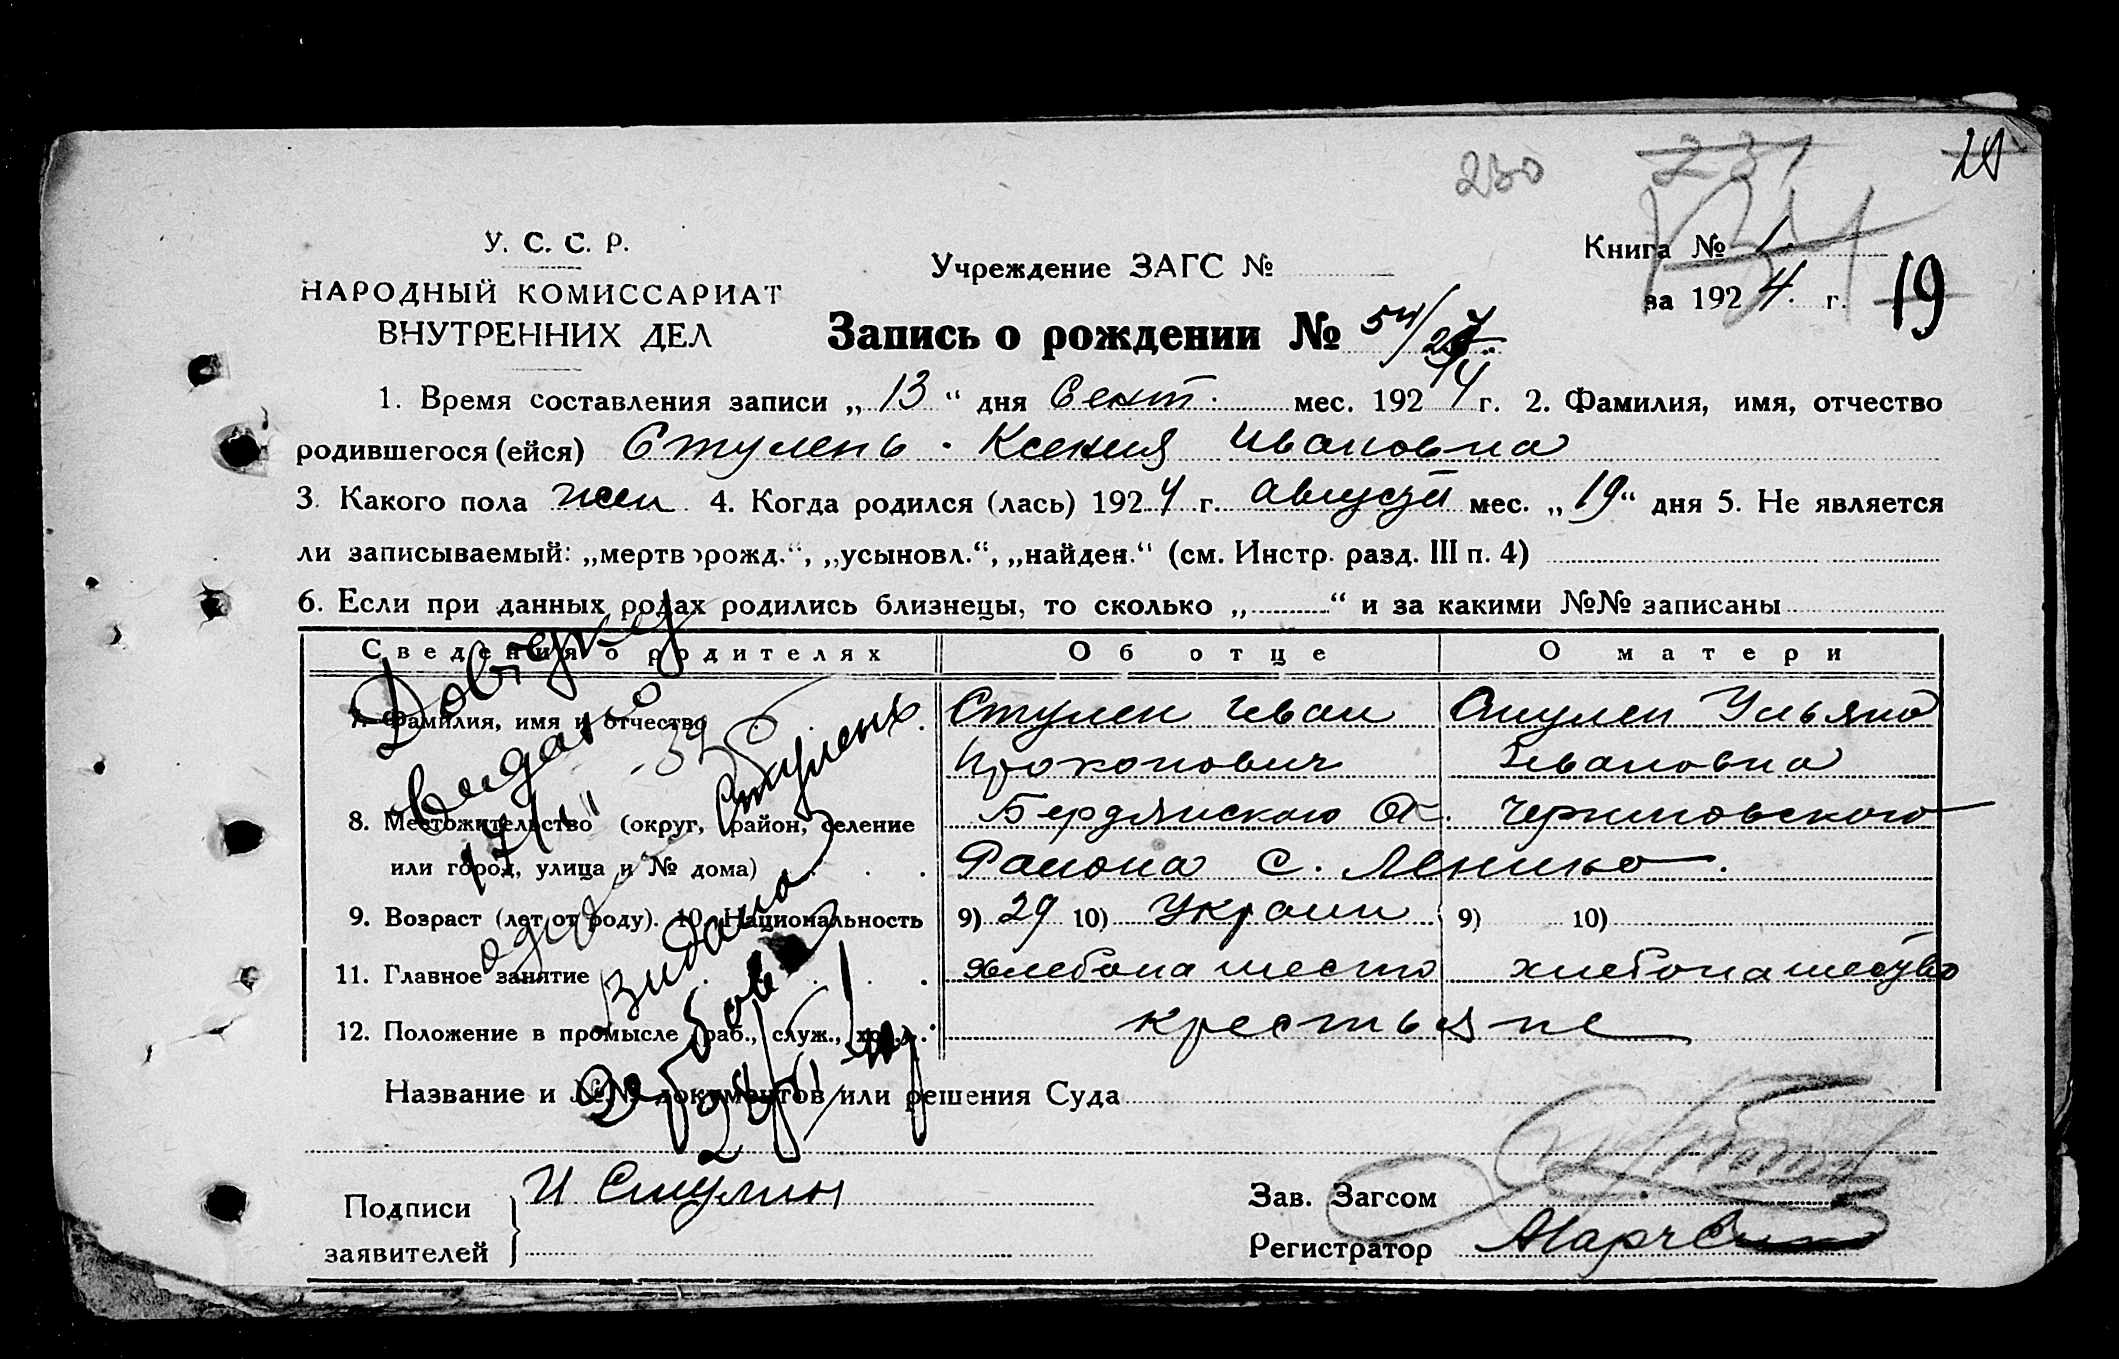 230
231
19
У. С. С. Р.
НАРОДНЫЙ КОМИССАРИАТ
ВНУТРЕННИХ ДЕЛ
Учреждение ЗАГС №
Книга № 1
за 1924 г.
Запись о рождении № 54/27
1. Время составления записи „13“ дня Сент. мес. 1924 г. 2. Фамилия, имя, отчество
родившегося (ейся) Стулень Ксения Ивановна
3. Какого пола жен 4. Когда родился (лась) 1924 г. август мес. „19“ дня 5. Не является
ли записываемый: „мертворожд.“, „усыновл.“, „найден.“ (см. Инстр. разд. III п. 4)
6. Если при данных родах родились близнецы, то сколько „ “ и за какими №№ записаны
Сведения о родителях Об отце О матери
7. Фамилия, имя и отчество Стулен Иван Стулен Ульяна
Прокопович Ивановна
8. Местожительство (округ, район, селение Бердянского Ок. Черниговского
или город, улица и № дома) Района с. Ленино
9. Возраст (лет от роду). 10. Национальность 9) 29 10) Украин 9) 10)
11. Главное занятие хлебопашество хлебопашество
12. Положение в промысле (раб., служ., хоз.). крестьяне
Довідку
видано
Стулень
Видано
Название и №№ документов или решения Суда
Подписи
заявителей
И Стулин
Зав. Загсом
Регистратор